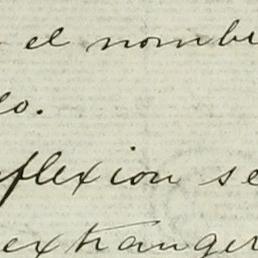 el nombr
lo.
flexion se
extranger